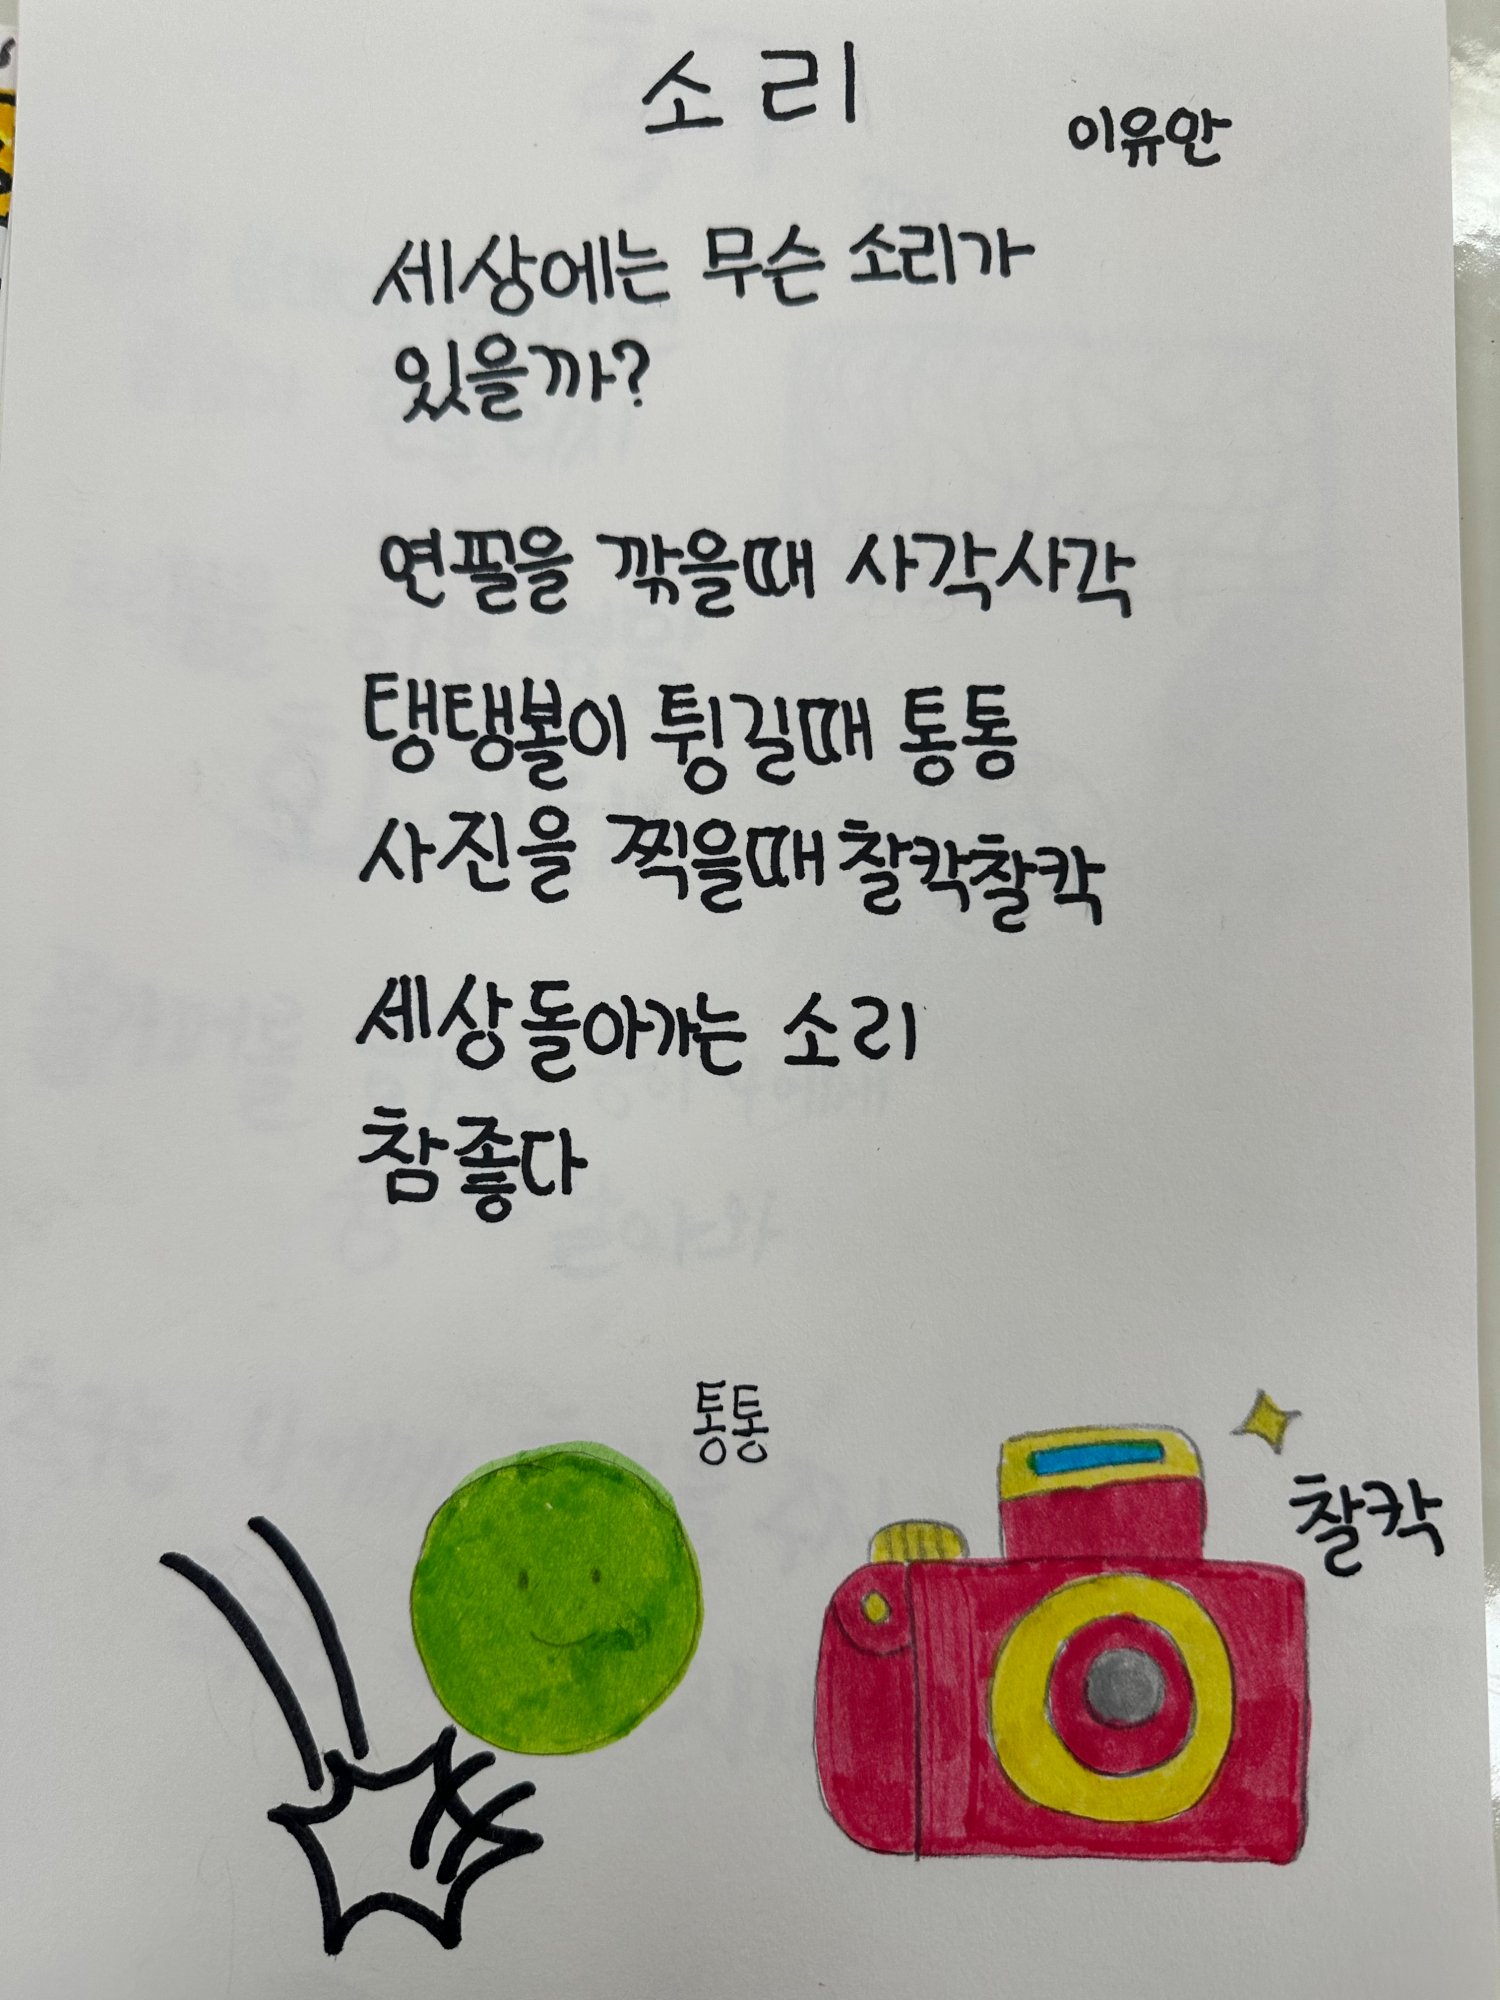 소리
이유안
세상에는 무슨 소리가
있을까?
연필을 깎을때 사각사각
탱탱볼이 튕길때 통통
사진을 찍을때 찰칵찰칵
세상돌아가는 소리
참좋다
통통
찰칵